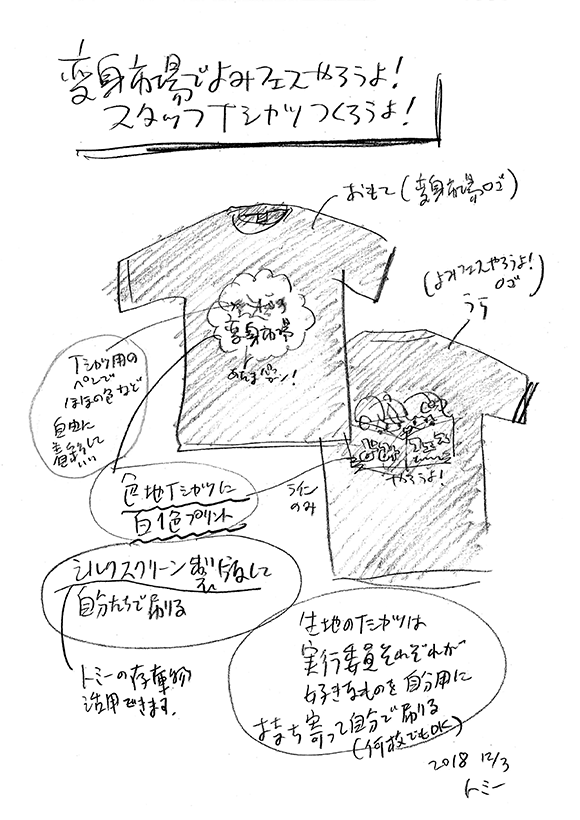 変身市場でよみフェスやろうよ!
スタッフTシャツつくろうよ!
おもて(変身市場ロゴ)
(よみフェスやろうよ!
ロゴ)
うら
変身市場
あたまパッカーン!
Tシャツ用の
ペンで
ほほの色など
自由に
着彩して
いい
よみ フェス
やろうよ!
ライン
のみ
色地Tシャツに
白1色プリント
シルクスクリーン製版して
自分たちで刷る
トミーの在庫物
活用できます。
生地のTシャツは
実行委員それぞれが
好きなものを自分用に
持ち寄って自分で刷る
(何枚でもOK)
2018 12/3
トミー